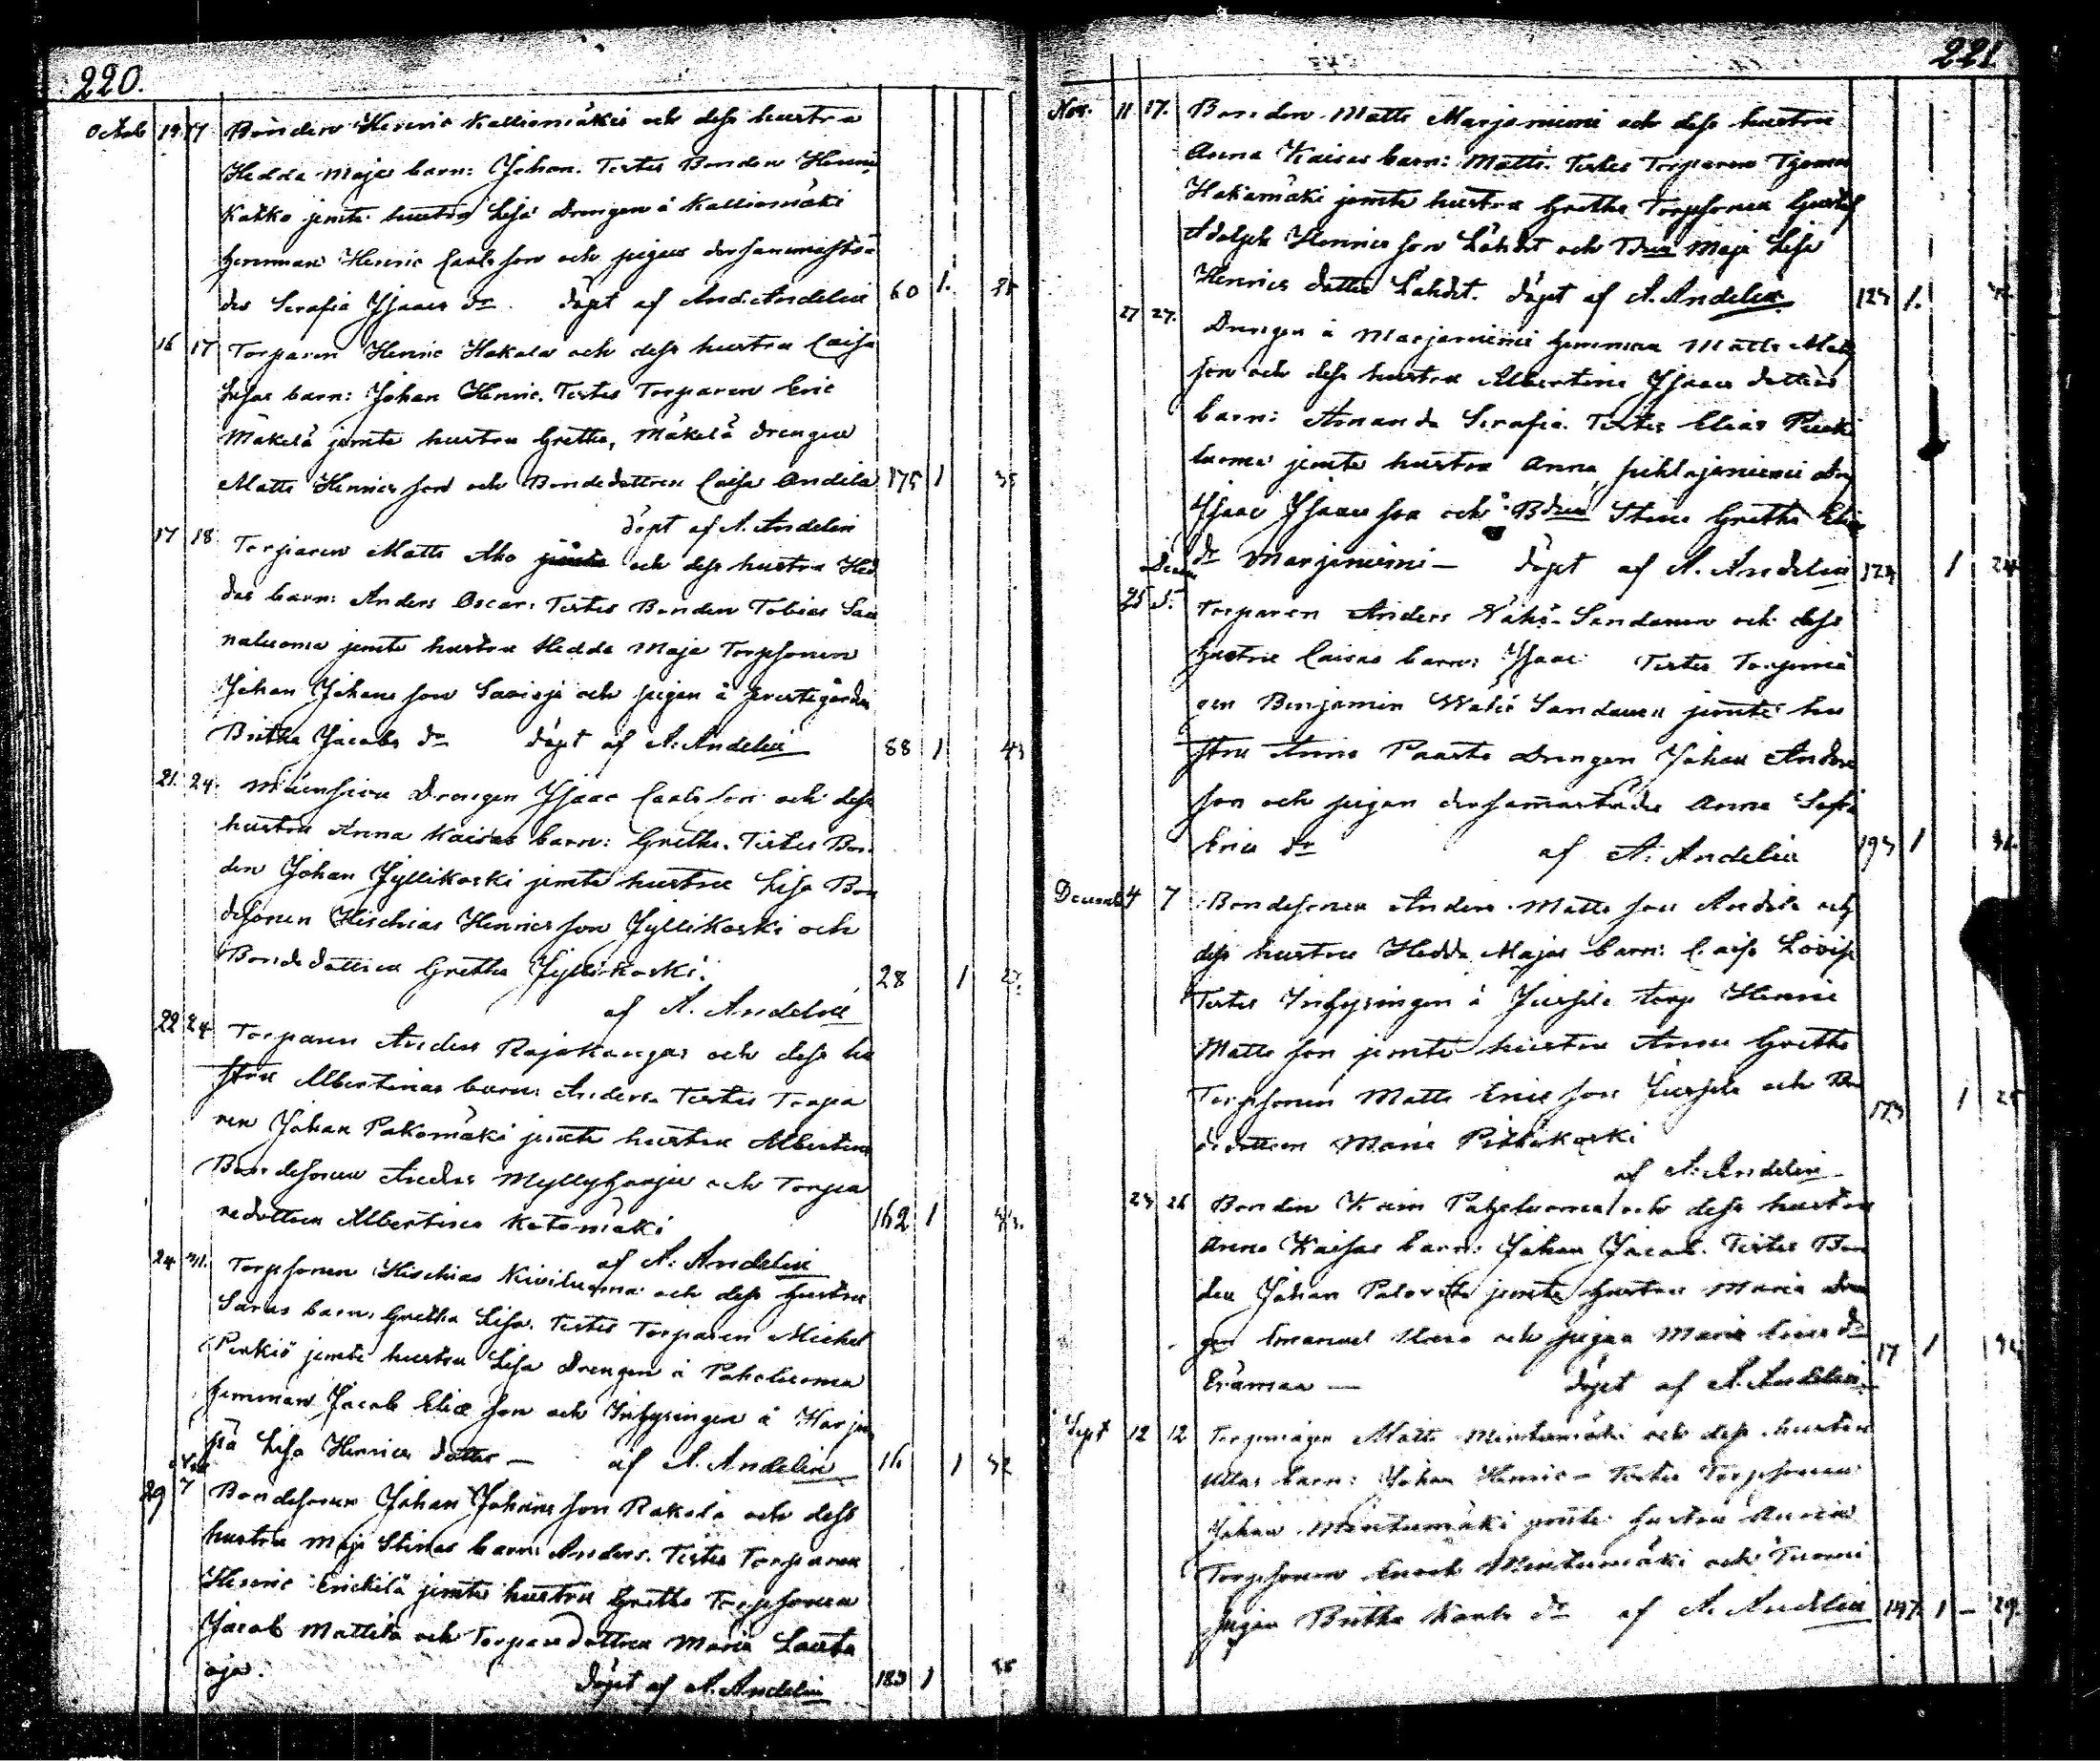 220.
Octob 14 17 Bonden Henric Kalliomäkis och dess hustru
Hedda Majas barn: Johan. Testes Bonden Henric
Katko jemte hustru Lisa Drengen å Kalliomäki
hemman Henric Carlsson och pigan dersammastä-
des Serafia Isaacs dr döpt af And. Andelin 60 1.
16 17 Torparen Henric Hakala och dess hustru Caisa
Lisas barn: Johan Henric. Testes Torparen Eric
Mäkelä jemte hustru Gretha, Mäkelä drengen
Matts Henricsson och Bondedottren Caisa Andila 175 1 35
döpt af A. Andelin
17 18 Torparen Matts Aho jemte och dess hustru Hed
das barn: Anders Oscar. Testes Bonden Tobias Sau
naluoma jemte hustru Hedda Maja Torpsonen
Johan Johansson och pigan å Prestegården
Britha Jacobs dr döpt af A. Andelin 88 1 43
21. 24. Drengen Isaac Carlsson och dess
hustru Anna Kaisas barn: Gretha. Testes Bon
den Johan Jyllikoski jemte hustru Lisa Bon
desonen Hischias Henricsson Jyllikoski och
Bondedottren Gretha Jyllikoski. 28 1
af A. Andelin
22 24 Torparen Anders Rajakangas och dess hu
stru Albertinas barn: Anders. Testes Torpa
ren Johan Pakomäki jemte hustru Albertina
Bondesonen Anders Myllyharju och Torpa
redottren Albertina Katomäki 162 1
af A. Andelin
24 31. Torpsonen Hischias Kiviluoma och dess hustru
Saras barn: Gretha Lisa. Testes Torparen Michel
Perkiö jemte hustru Lisa Drengen å Paholuoma
hemman Jacob Eliæ son och Inhysingen å Harju
pä Lisa Henrics dotter — af A. Andelin 16 1 32
Nov
29 7 Bondesonen Johan Johansson Rakola och dess
hustru Maja Stinas barn: Anders. Testes Torparen
Henric Erickilä jemte hustru Gretha Torpsonen
Jacob Mattila och Torparedottren Maria Lauta
oja. döpt af A. Andelin 183 1
221
Nov. 11 17. Bonden Matts Marjaniemi och dess hustru
Anna Kaisas barn: Matts. Testes Torparen
Hakamäki jemte hustru Gretha Torpsonen Gustaf
Adolph Henricsson Lähdet och Tdren Maja Lisa
Henrics dotter Lähdet. döpt af A. Andelin 123 1.
27 27. Drengen å Marjaniemi hemman Matts Matts
son och dess hustru Albertina Isaacs dotters
barn: Amanda Serafia. Testes Elias
luoma jemte hustru Anna, Pihlajaniemi
Isaac Isaacsson och Bdren Stina Gretha
dr Marjaniemi — döpt af A. Andelin 123 1 24
Decem
25 5. Torparen Anders Vähä-Sandanen och dess
hustru Caisas barn: Isaac Testes Torpmå
gen Benjamin Wähä Sandanen jemte hu
stru Anna Paasto Drengen Johan Anders
son och pigan dersammastädes Anna Sofia
Erics dr af A. Andelin 193 1
Decemb 4 7 Bondesonen Anders Mattsson Andila och
dess hustru Hedda Majas barn: Caisa Lovisa
Testes Inhysingen å Jussila torp Henric
Mattsson jemte hustru Anna Gretha
Torpsonen Matts Ericsson Jussila och Bon
dedottren Maria Pitkäkoski 173 1 25
af A. Andelin
23 26 Bonden Paholuoma och dess hustru
Anna Kaisas barn: Johan Jacob. Testes Bon
den Johan jemte hustru Maria Dren
gen Emanuel och pigan Maria Erics dr
döpt af A. Andelin 17 1
Sept 12 12 Torpmågen Matts Mintumäki och dess hustru
Ullas barn: Johan Henric — Testes Torpsonen
Johan Mintumäki jemte hustru
Torpsonen Enoch Mintumäki och
pigan Britha Karls dr af A. Andelin 147 1 — 29.